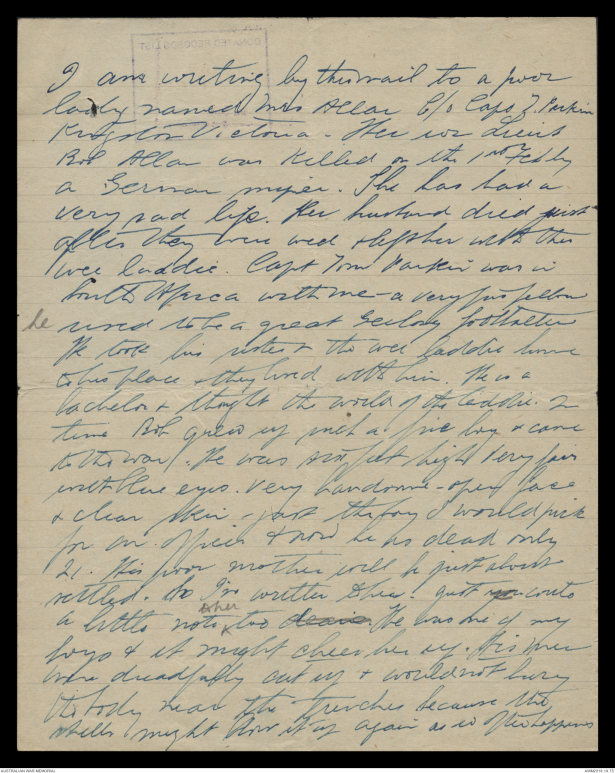 I am writing by this mail to a poor
lady named Mrs Allan C/o Capt T. Parkin
Kingston Victoria - Her wee Lieut
Bob Allan was killed on the 1st Feb by
a German sniper. She has had a
very sad life. Her husband died just
after they were wed & left her with this
wee laddie. Capt Tom Parkin was in
South Africa with me - a very fine fellow
he used to be a great Geelong footballer
He took his sister & the wee laddie home
to his place & they lived with him. He is a
bachelor & thought the world of the laddie. In
time Bob grew up such a fine boy & came
to the war. He was six feet high very fair
with blue eyes. Very handsome - open face
& clear skin - just the boy I would pick
for an officer & now he is dead only
21. His poor mother will be just about
settled. So I've written & her. Just you write
a little note & her too dearie. He was one of my
boys & it might cheer her up. His men
were dreadfully cut up & would not bury
the body near the trenches because the
shells might blow it up again as so often happens
AUSTRALIAN WAR MEMORIAL